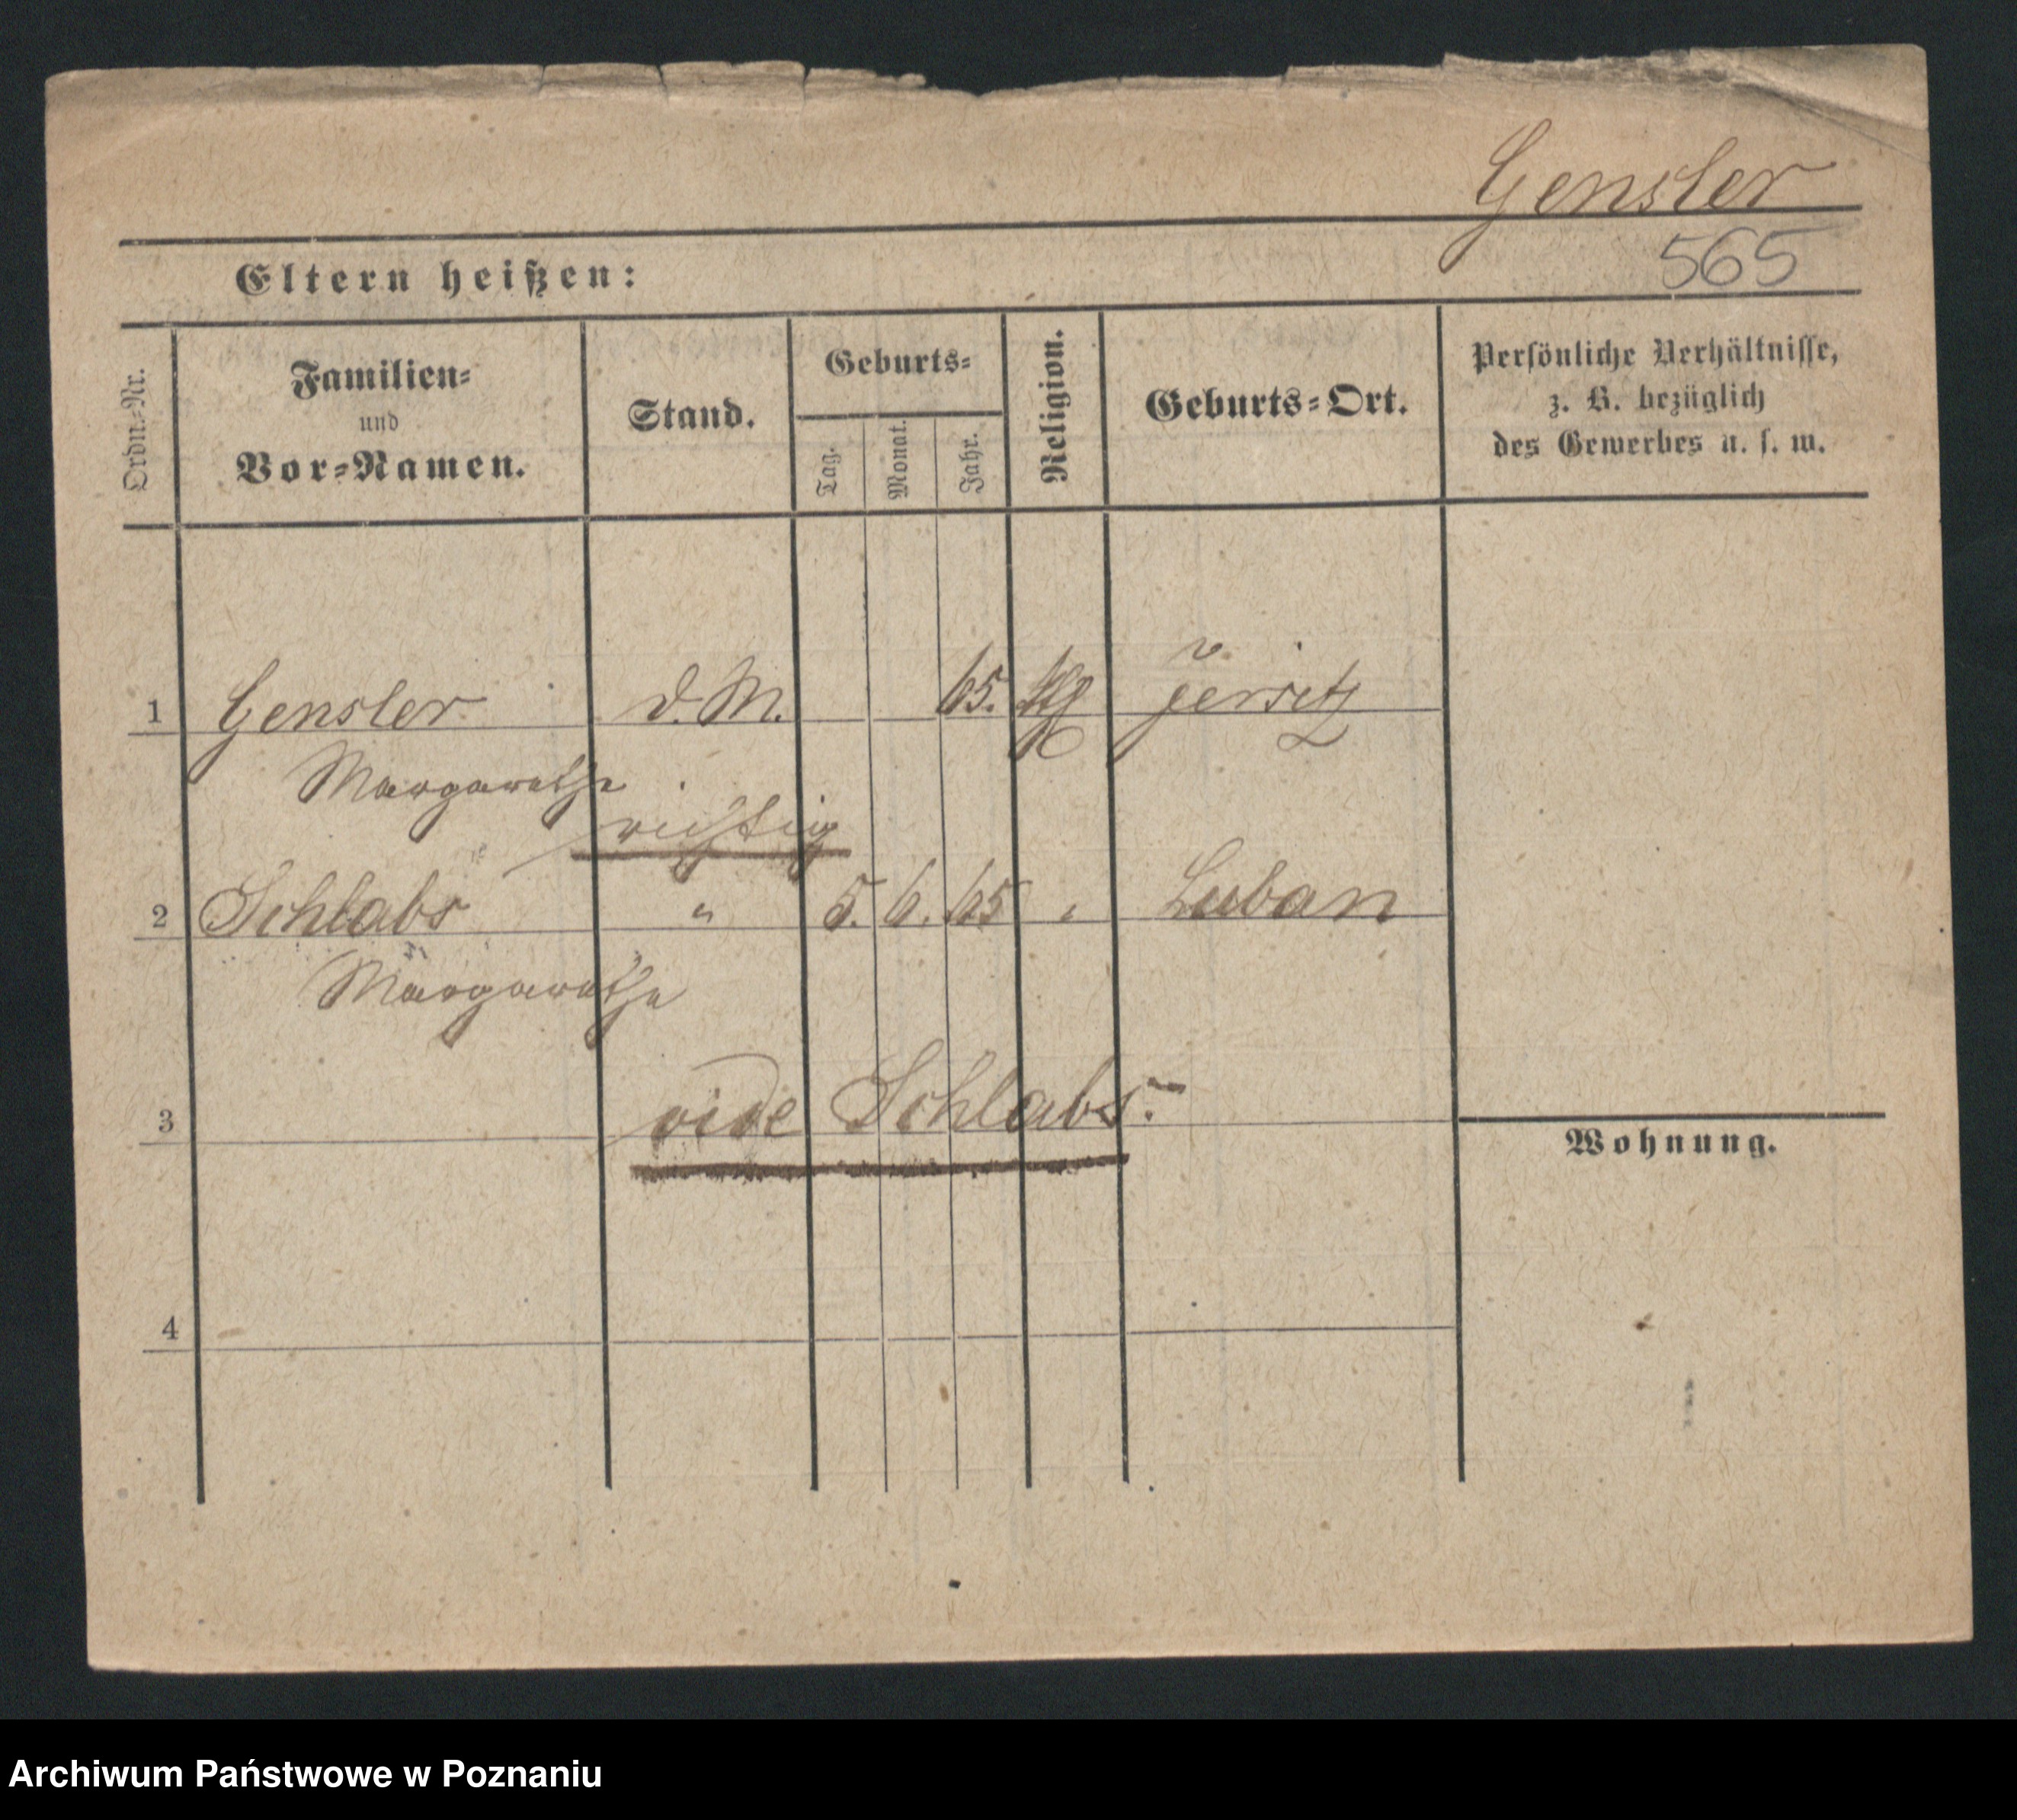 Gensler
565
Eltern heißen:
Ordn.-Nr.
Familien-
und
Vor-Namen.
Stand.
Geburts-
Tag.
Monat.
Jahr.
Religion.
Geburts-Ort.
Persönliche Verhältnisse,
z. B. bezüglich
des Gewerbes u. s. w.
1 Gensler d. M. 65. Jersitz
Margarethe
richtig
2 Schlabs " 5. 6. 65 " Luban
Margarethe
3 vide Schlabs.
Wohnung.
4
Archiwum Państwowe w Poznaniu